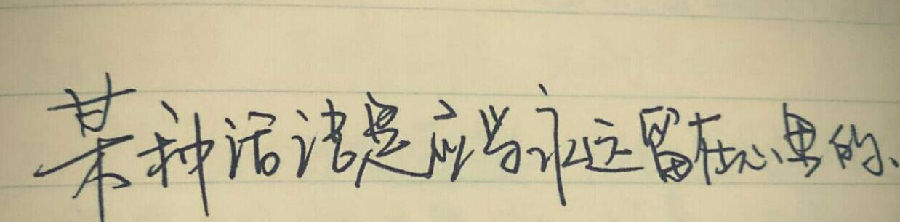 某种话语是应当永远留在心里的、